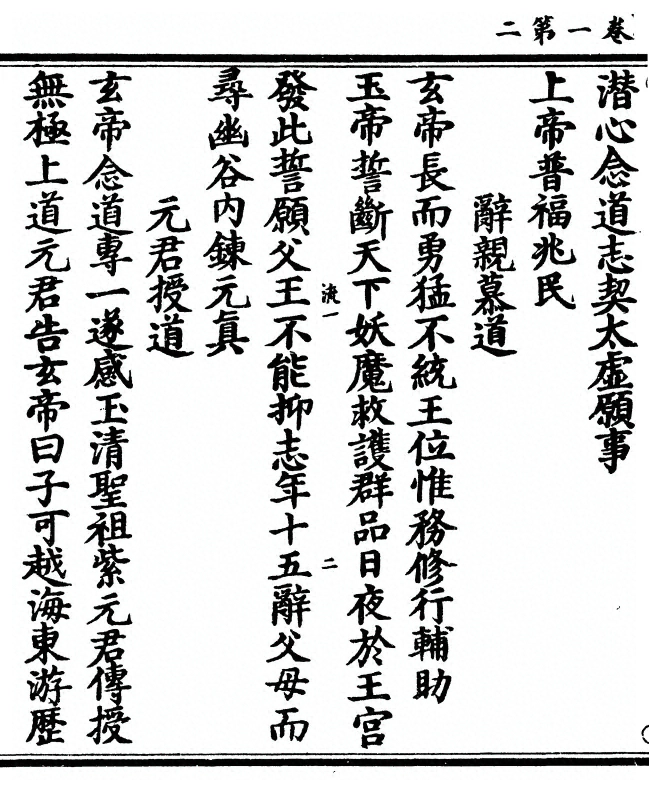 卷一第二
潜心念道志契太虛願事
上帝普福兆民
辭親慕道
玄帝長而勇猛不統王位惟務修行輔助
玉帝誓斷天下妖魔救護群品日夜於王宮
發此誓願父王不能抑志年十五辭父母而
尋幽谷內鍊元眞
元君授道
玄帝念道專一遂感玉清聖祖紫元君傳授
無極上道元君告玄帝曰子可越海東游歷
二